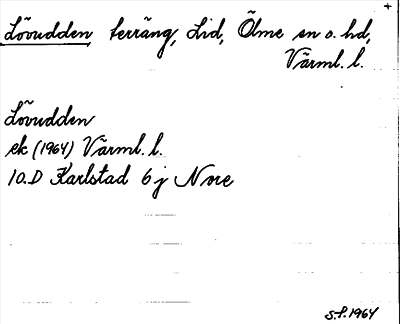 Lövudden terräng, Lid, Ölme sn o. hd,
Värml. l.
+
Lövudden
ek (1964) Värml. l.
10.D Karlstad 6 j Nore
S.P. 1964